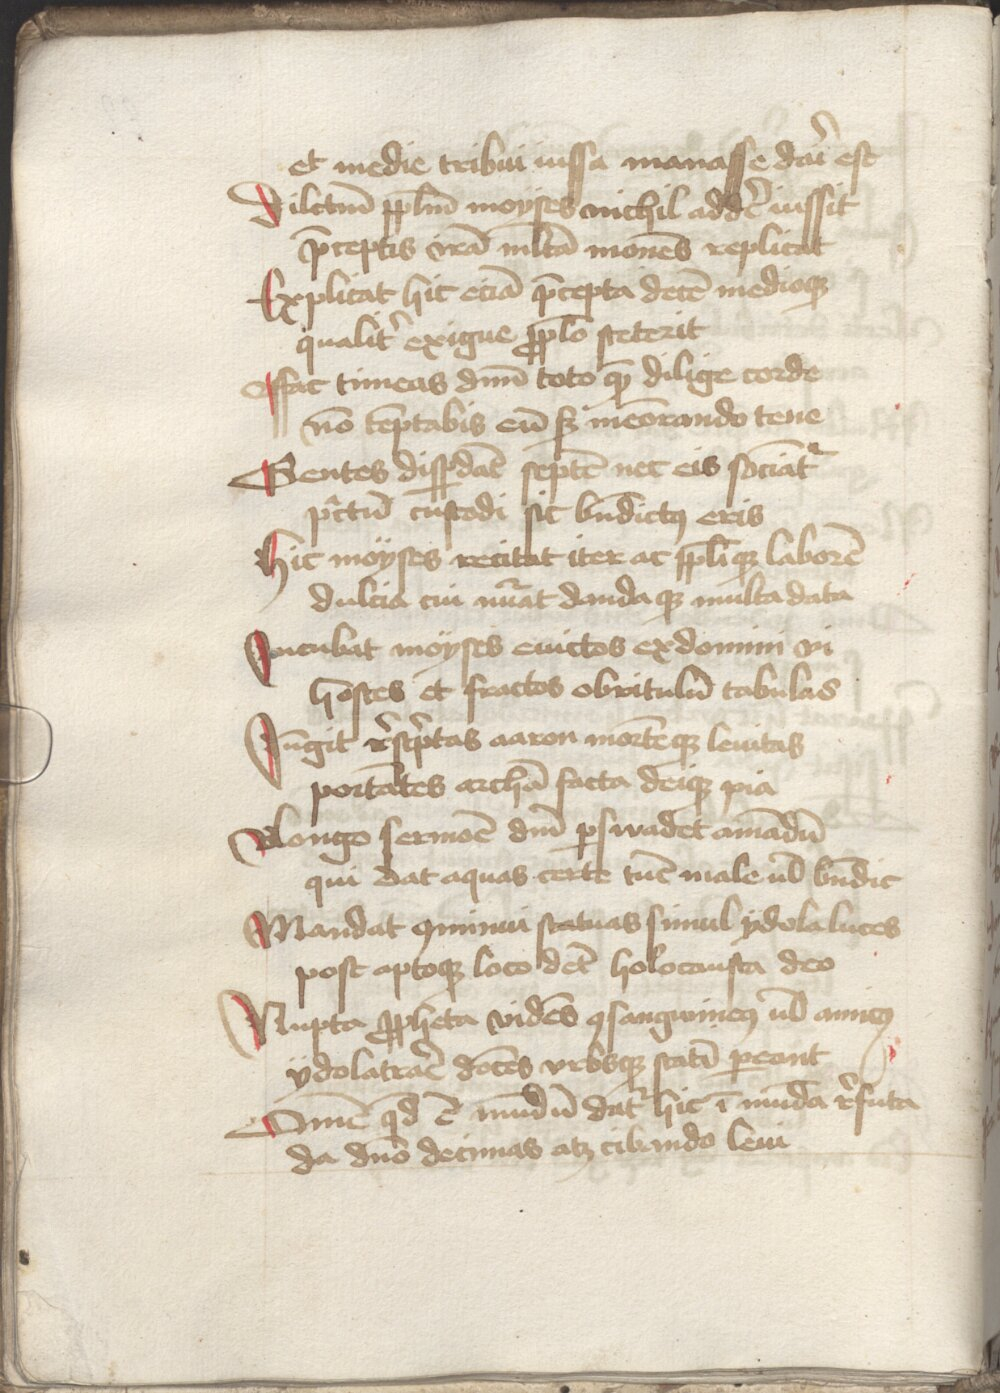 et medie tribui iussa manasse dari est
Dilectum pplm moyses nichil adde iussit
pceptis iram multa monens replicat
Explicat hic eciam pcepta decem medioque
qualiter exigue pplo steterit
Effac timeas dnm toto que dilige corde
non temptabis eum sed memorando tene
Gentes disperdant septem nec eis sociatur
pactum custodi sic bndictus eris
Hic moyses recitat iter ac pplique laborem
dulcia cui narrat dandaque multa data
Incubat moyses euictos ex domini vi
hostes et fractos ob vitulum tabulas
Iungit rescriptas aaron mortemque leuitas
portantes archam facta deique pia
Longo sermone dnm perswadet amandum
qui dat aquas certe tunc male uel bndic
Mandat comminui statuas simul ydola lucos
post aptoque loco dent holocausta deo
Nupta propheta videns consanguineus uel amicus
ydolatrare docens vrbsque statim pereant
Omne quod est mundum datur hic immunda refuta
da dno decimas atque cibando leui